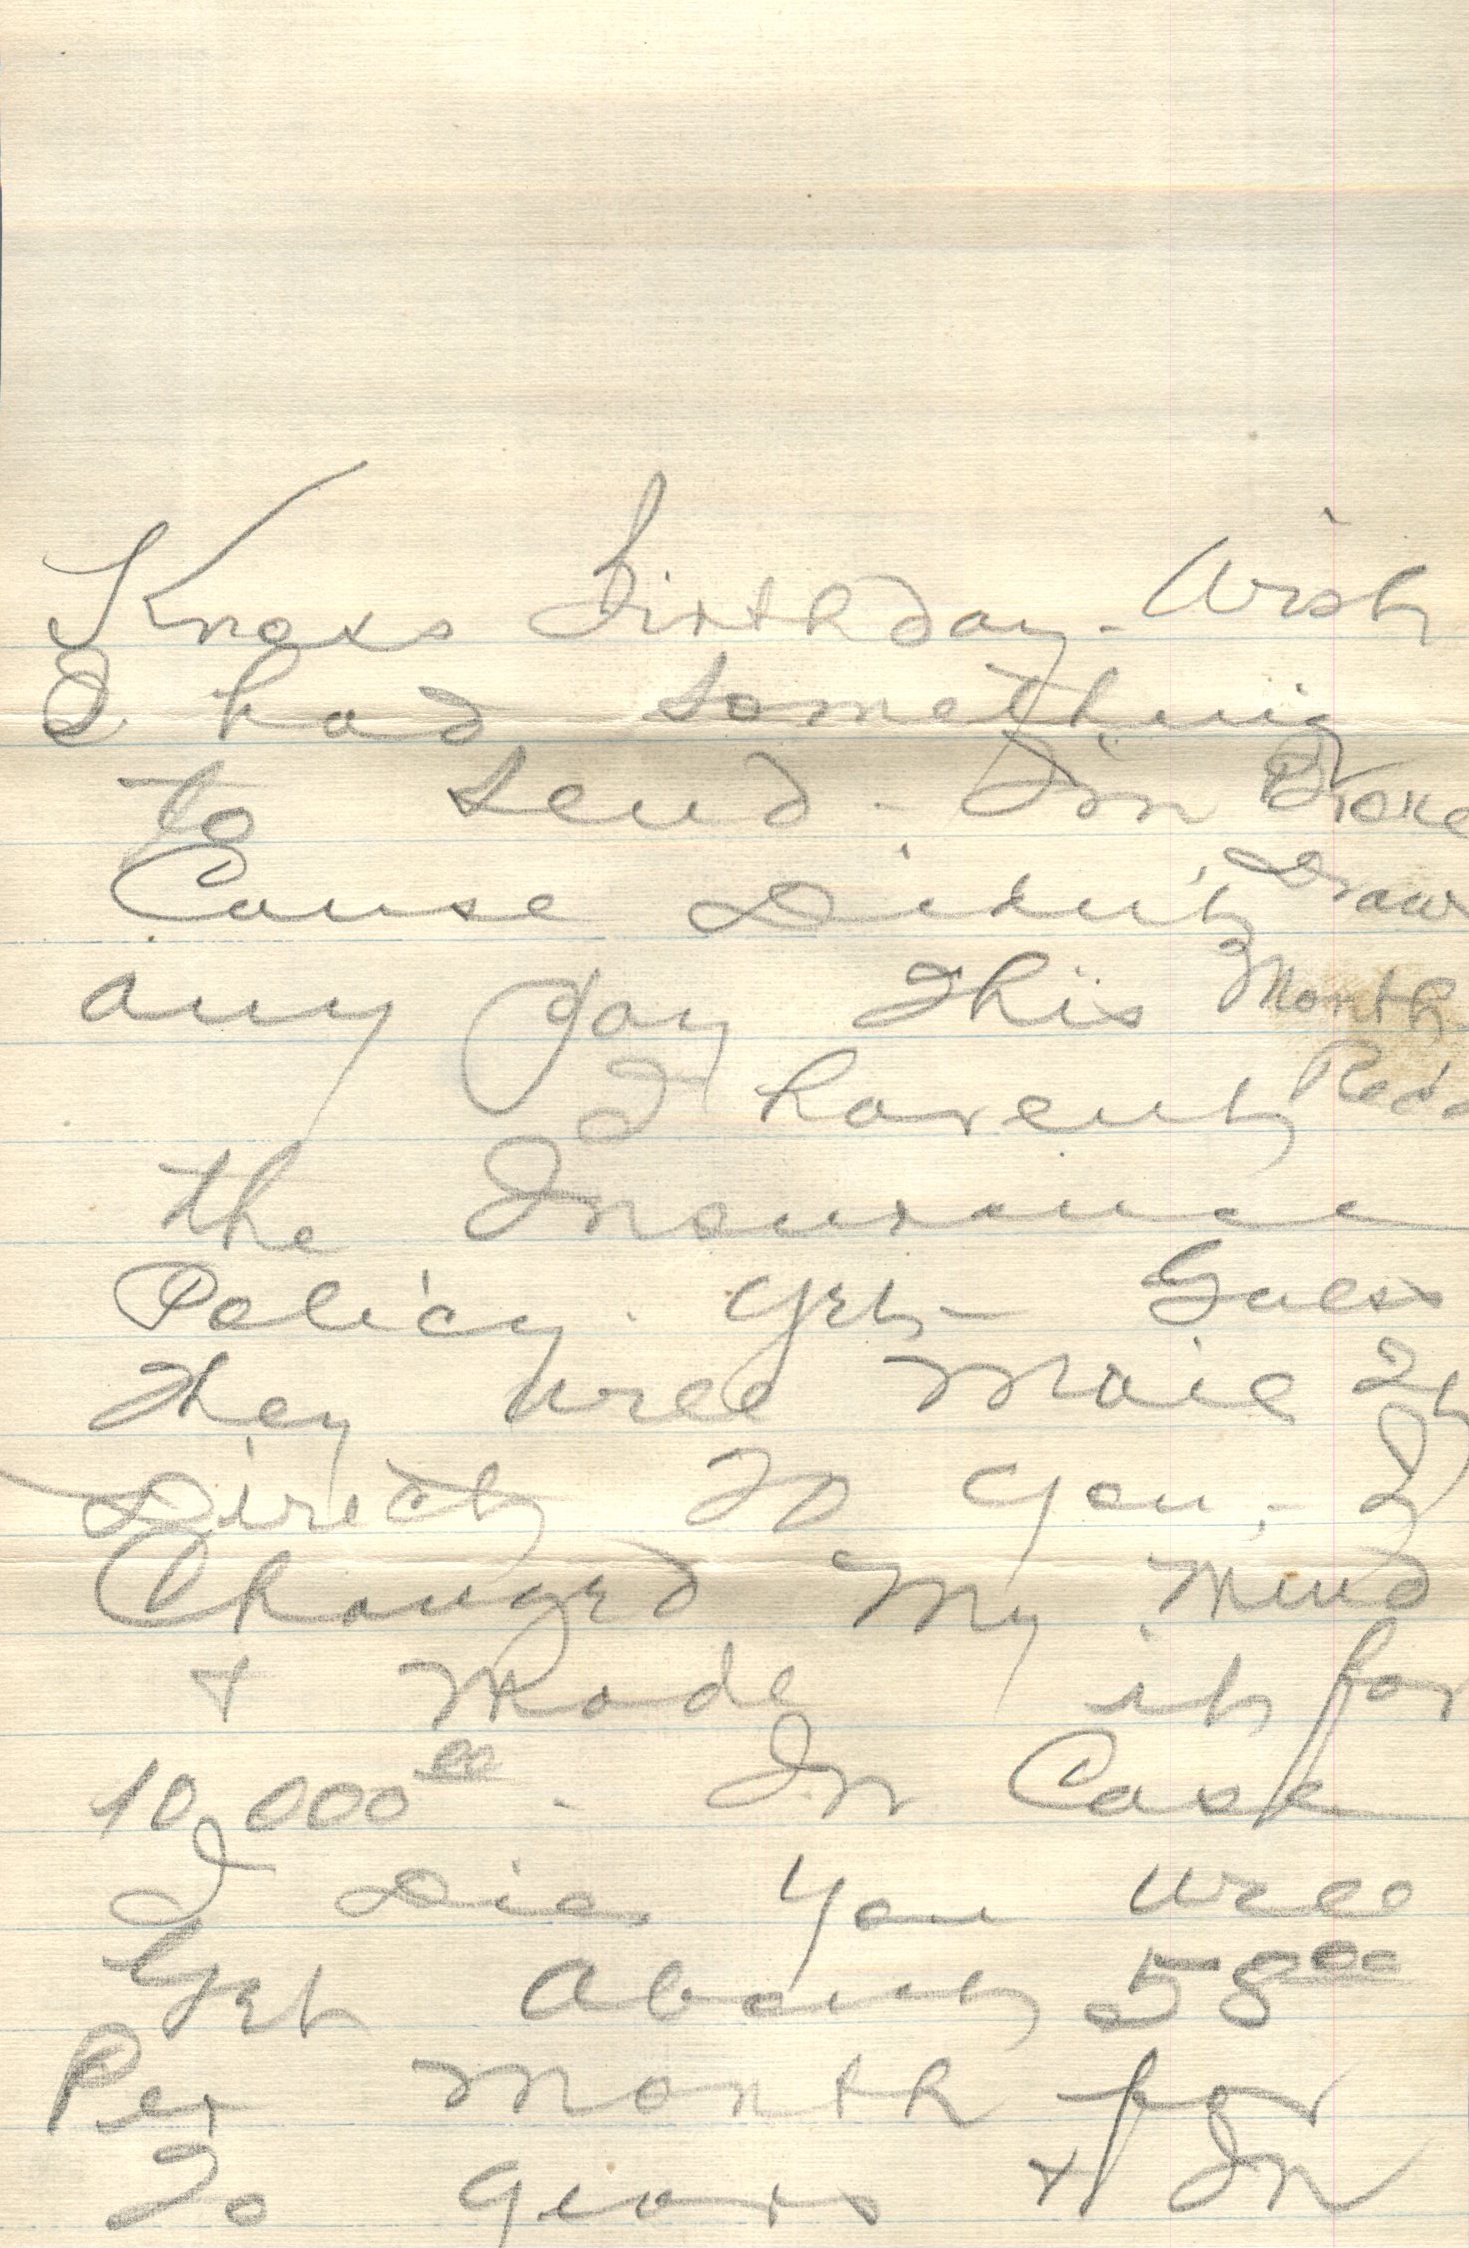 Knoxs birthday - Wish
I had something
to send - I'm Broke
Cause Didn't Draw
any pay This Month
I havent Recd
the Insurance
Policy yet - Guess
They will mail It
Direct To you, - I
Changed My Mind
+ Made it for
10,000 00 - In Case
I Die you will
Get about 58 00
Per month for
20 years + In